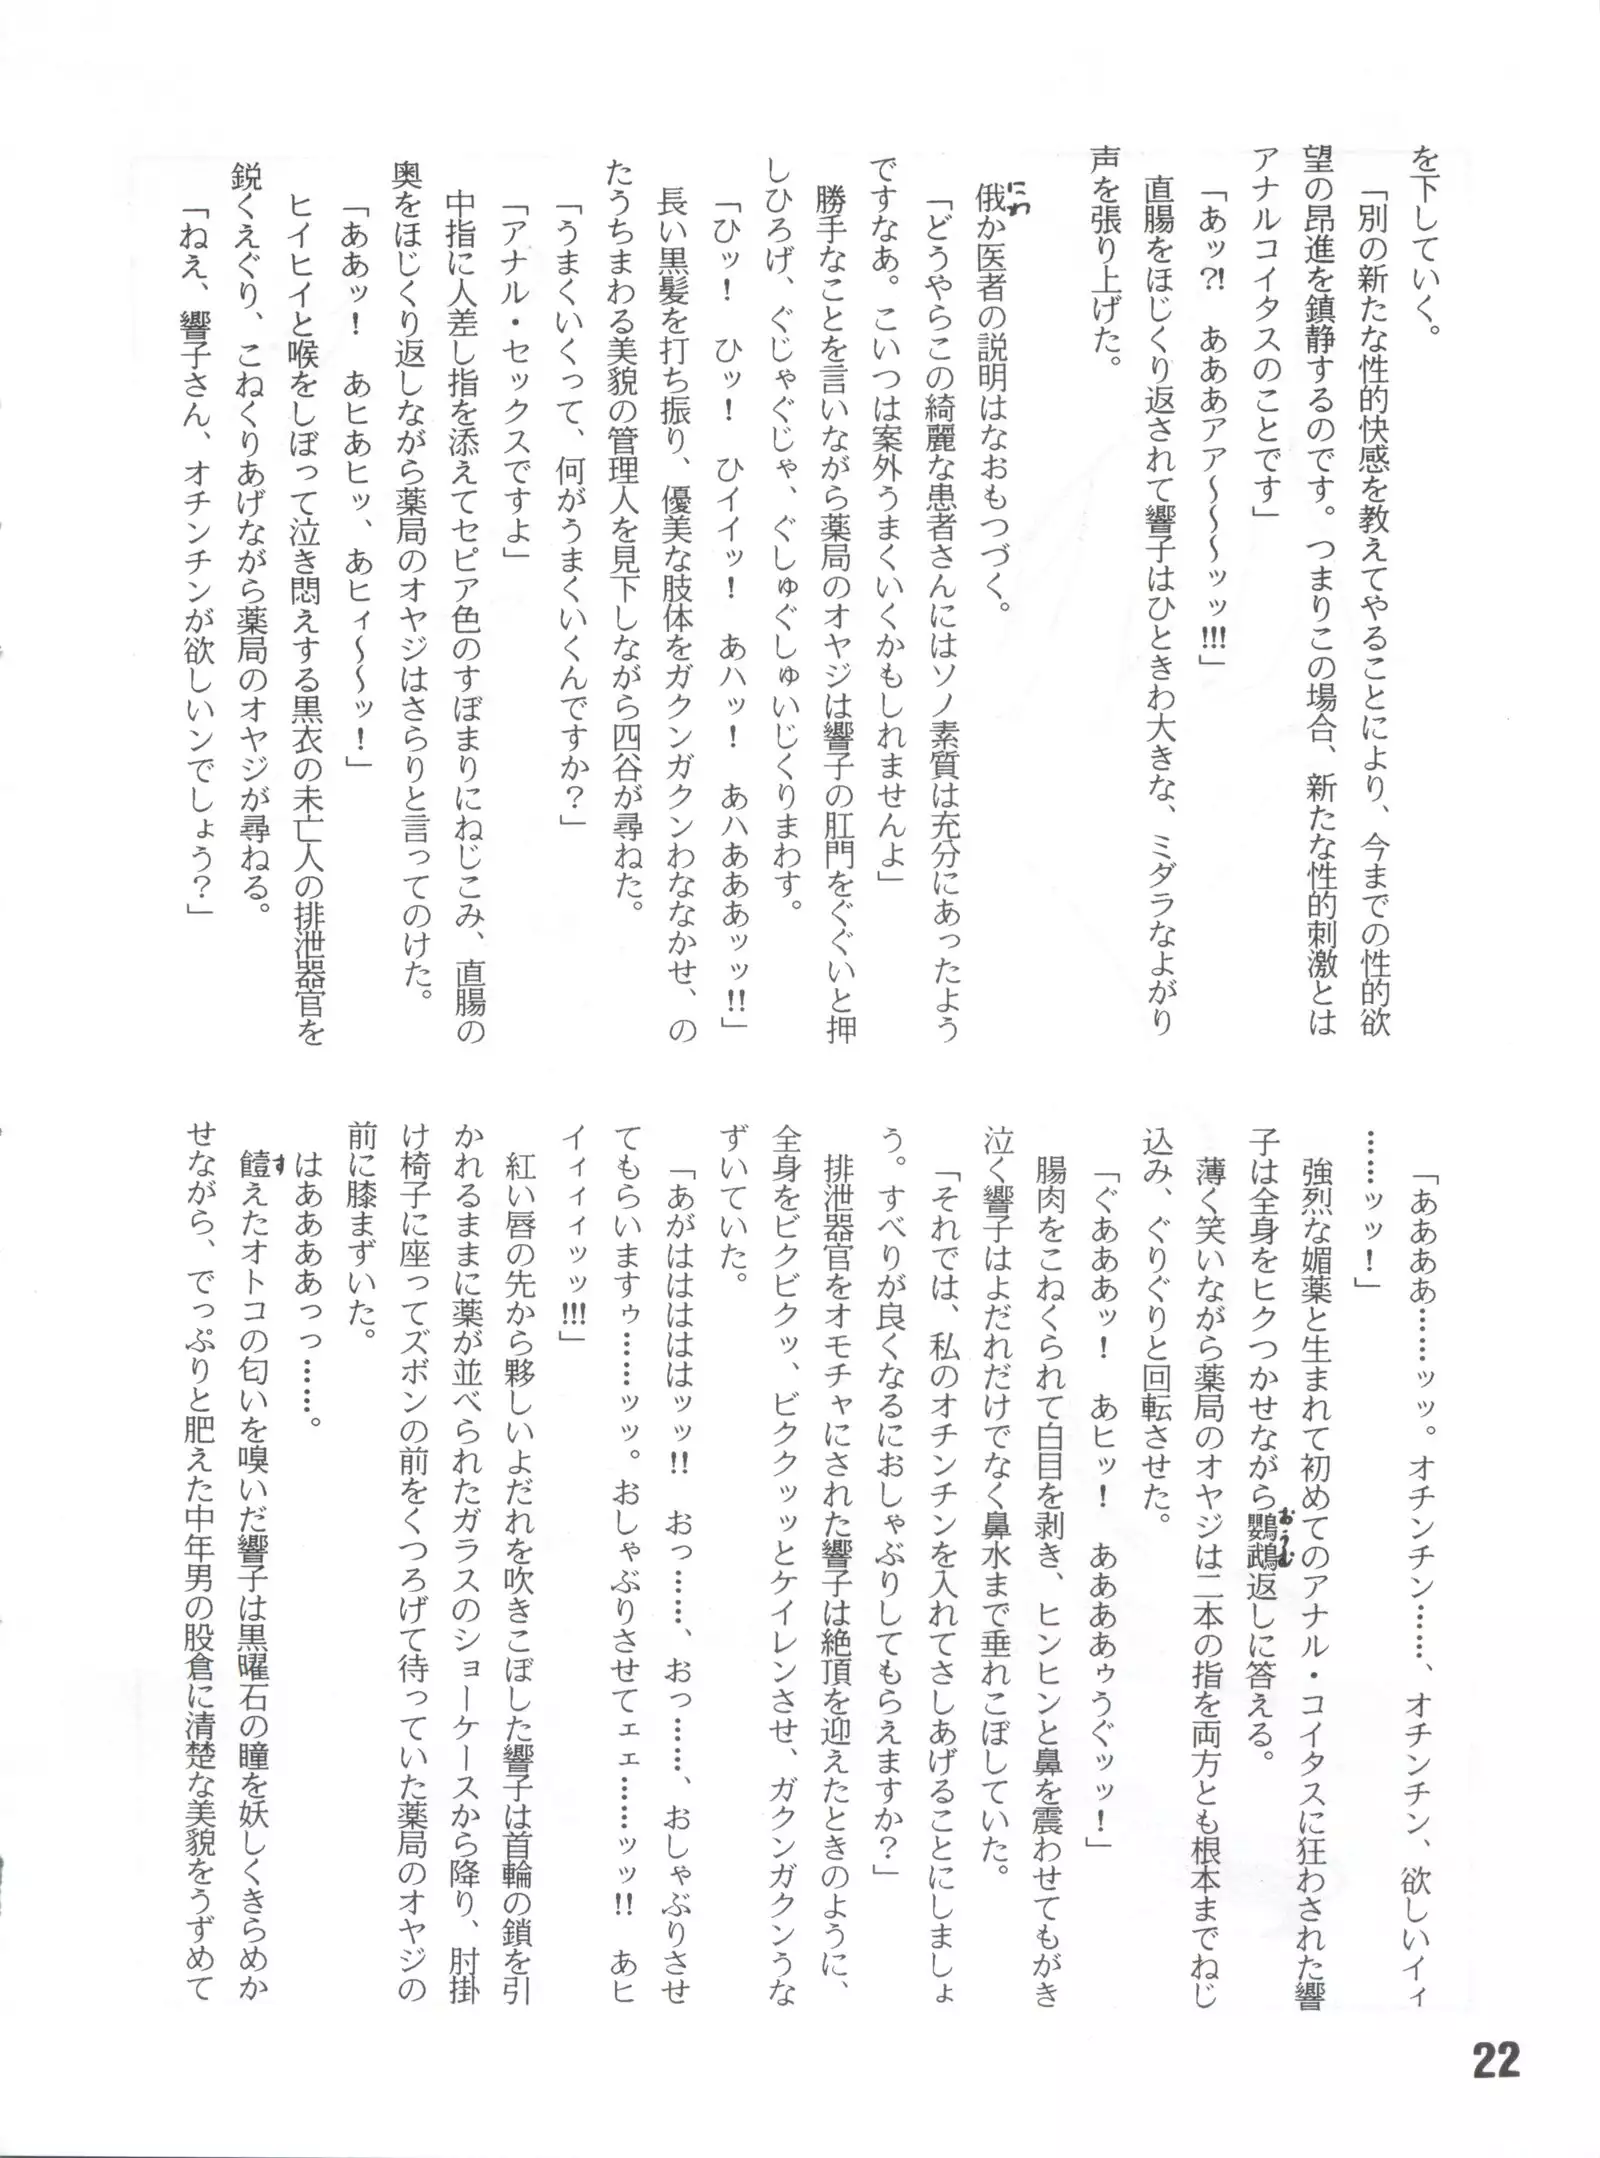 を下していく。
「別の新たな性的快感を教えてやることにより、今までの性的欲
望の昂進を鎮静するのです。つまりこの場合、新たな性的刺激とは
アナルコイタスのことです」
「あッ?!　あああアア～～～ッッ!!!」
直腸をほじくり返されて響子はひときわ大きな、ミダラなよがり
声を張り上げた。
俄か医者の説明はなおもつづく。
にわ
「どうやらこの綺麗な患者さんにはソノ素質は充分にあったよう
ですなあ。こいつは案外うまくいくかもしれませんよ」
勝手なことを言いながら薬局のオヤジは響子の肛門をぐぐいと押
しひろげ、ぐじゃぐじゃ、ぐしゅぐしゅいじくりまわす。
「ひッ！　ひッ！　ひイイッ！　あハッ！　あハあああッッ!!」
長い黒髪を打ち振り、優美な肢体をガクンガクンわななかせ、の
たうちまわる美貌の管理人を見下しながら四谷が尋ねた。
「うまくいくって、何がうまくいくんですか？」
「アナル・セックスですよ」
中指に人差し指を添えてセピア色のすぼまりにねじこみ、直腸の
奥をほじくり返しながら薬局のオヤジはさらりと言ってのけた。
「ああッ！　あヒあヒッ、あヒィ～～ッ！」
ヒイヒイと喉をしぼって泣き悶えする黒衣の未亡人の排泄器官を
鋭くえぐり、こねくりあげながら薬局のオヤジが尋ねる。
「ねえ、響子さん、オチンチンが欲しいンでしょう？」
「ああああ……ッッ。オチンチン……、オチンチン、欲しいイィ
……ッッ！」
強烈な媚薬と生まれて初めてのアナル・コイタスに狂わされた響
子は全身をヒクつかせながら鸚鵡返しに答える。
おうむ
薄く笑いながら薬局のオヤジは二本の指を両方とも根本までねじ
込み、ぐりぐりと回転させた。
「ぐあああッ！　あヒッ！　ああああゥうぐッッ！」
腸肉をこねくられて白目を剥き、ヒンヒンと鼻を震わせてもがき
泣く響子はよだれだけでなく鼻水まで垂れこぼしていた。
「それでは、私のオチンチンを入れてさしあげることにしましょ
う。すべりが良くなるにおしゃぶりしてもらえますか？」
排泄器官をオモチャにされた響子は絶頂を迎えたときのように、
全身をビクビクッ、ビククッッとケイレンさせ、ガクンガクンうな
ずいていた。
「あがはははははッッ!!　おっ……、おっ……、おしゃぶりさせ
てもらいますゥ……ッッ。おしゃぶりさせてェェ……ッッ!!　あヒ
イィィィッッ!!!」
紅い唇の先から夥しいよだれを吹きこぼした響子は首輪の鎖を引
かれるままに薬が並べられたガラスのショーケースから降り、肘掛
け椅子に座ってズボンの前をくつろげて待っていた薬局のオヤジの
前に膝まずいた。
はあああっっ……。
饐えたオトコの匂いを嗅いだ響子は黒曜石の瞳を妖しくきらめか
す
せながら、でっぷりと肥えた中年男の股倉に清楚な美貌をうずめて
22